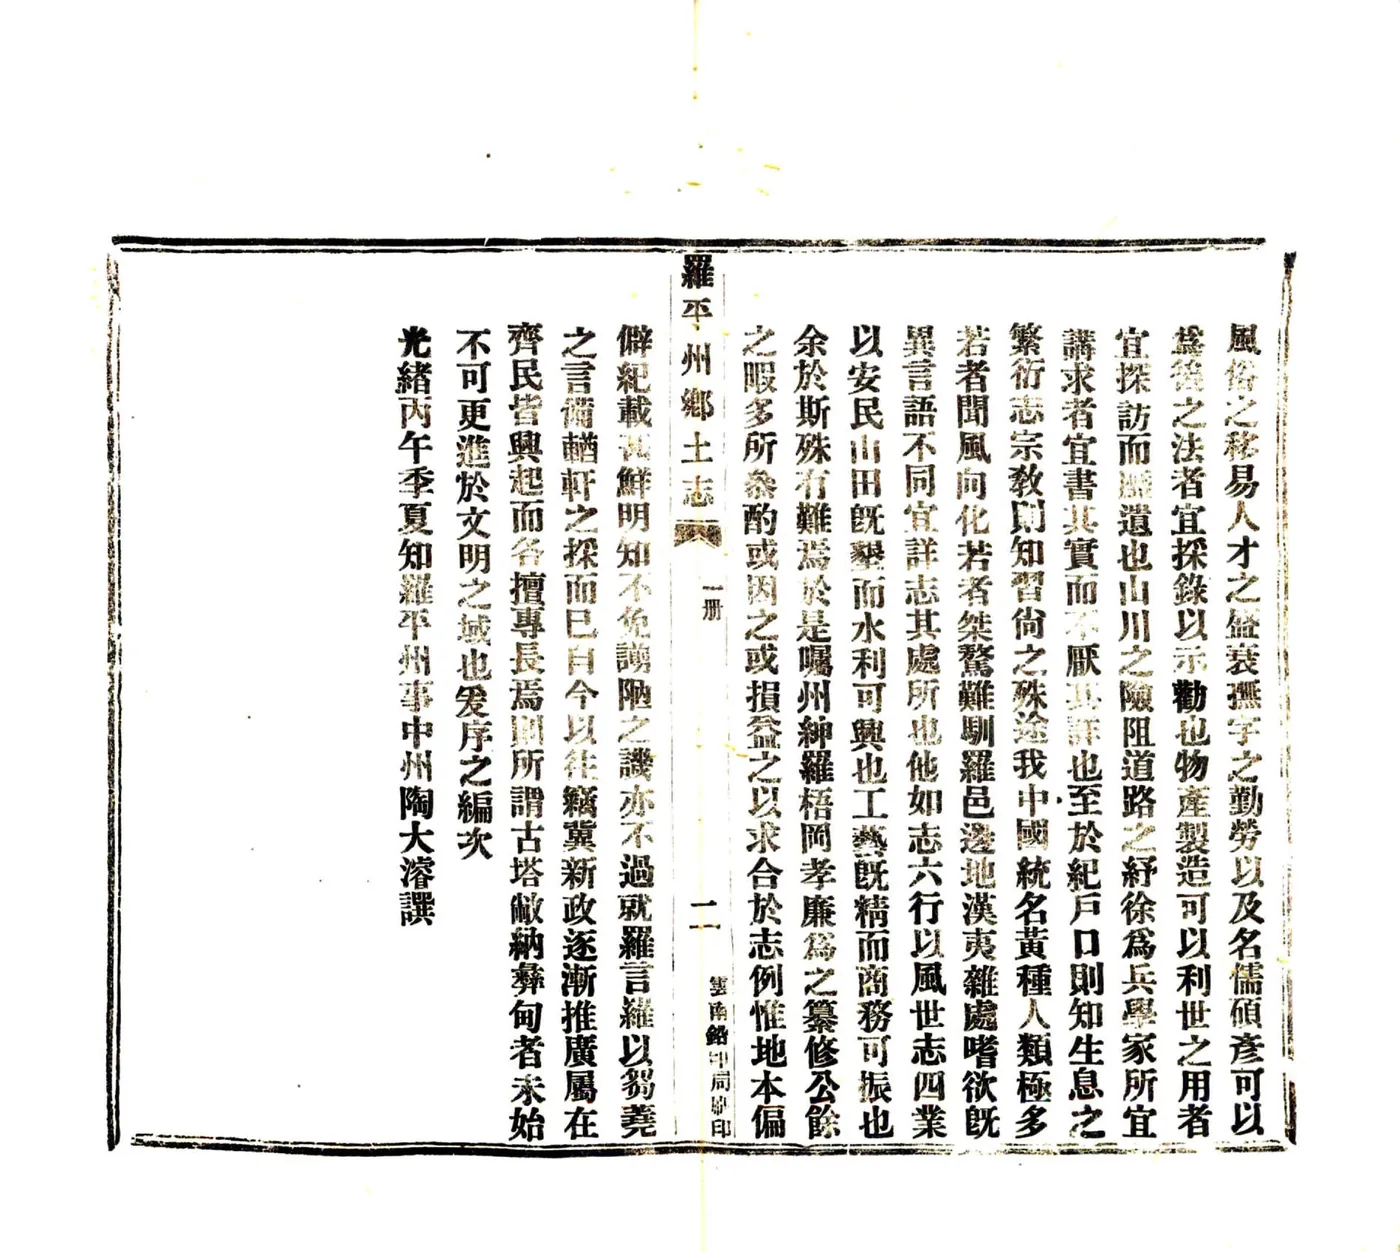 風俗之移易人才之盛衰撫字之勤勞以及名儒碩彥可以
爲後之法者宜採錄以示勸也物產製造可以利世之用者
宜探訪而遺也山川之險阻道路之紆徐爲兵學家所宜
講求者宜書其實而不厭其詳也至於紀戶口則知生息之
繁衍志宗敎則知習尙之殊途我中國統名黃種人類極多
若者聞風向化若者桀驁難馴羅邑邊地漢夷雜處嗜欲旣
異言語不同宜詳志其處所也他如志六行以風世志四業
以安民山田旣墾而水利可興也工藝旣精而商務可振也
余於斯殊有難焉於是囑州紳羅梧岡孝廉爲之纂修公餘
之暇多所叅酌或因之或損益之以求合於志例惟地本偏
羅平州鄉土志 一册 二 雲南鉛印局印
僻紀載甚鮮明知不免譾陋之譏亦不過就羅言羅以芻蕘
之言備輶軒之採而已自今以往竊冀新政逐漸推廣屬在
齊民皆興起而各擅專長焉則所謂古塔敝納彝甸者未始
不可更進於文明之域也爰序之編次
光緒丙午季夏知羅平州事中州陶大濬譔